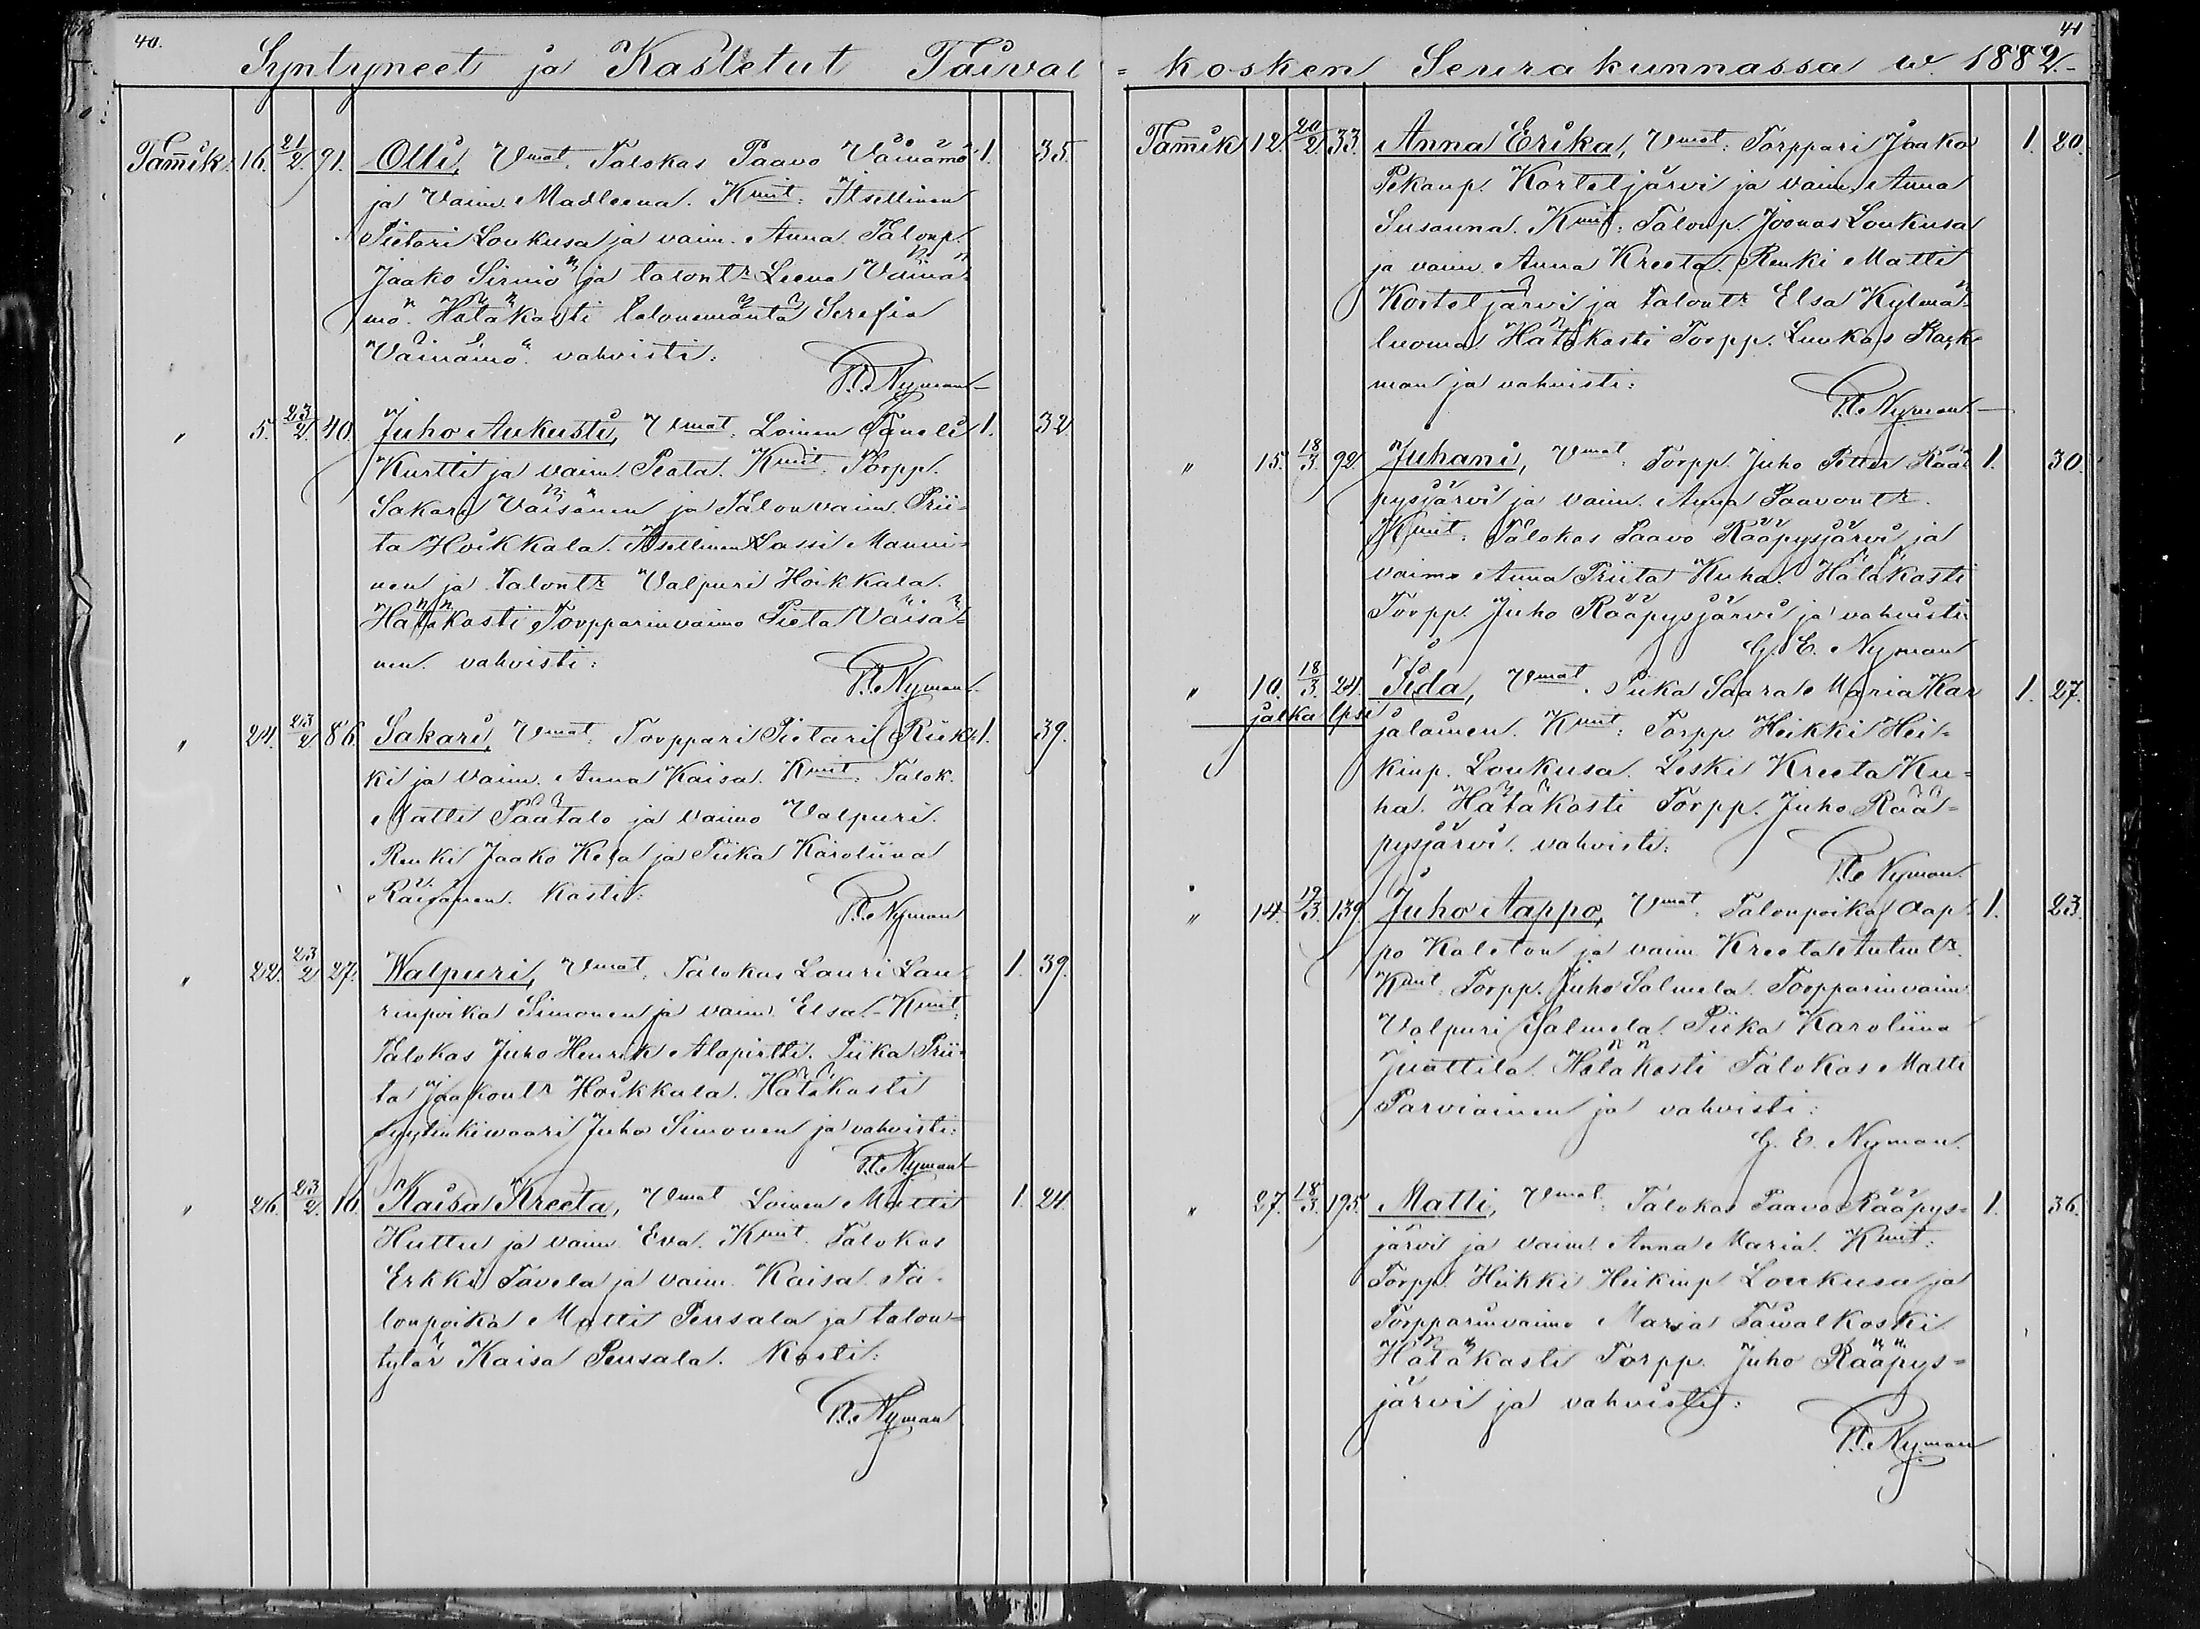 40.
Syntyneet ja Kastetut Taival
Tammik. 16. 21/2. 91. Olli, Vmat. Talokas Paavo Väinämö 1. 35.
ja Vaim. Madleena. Kmit: Itsellinen
Pietari Loukusa ja vaim. Anna. Talonp.
Jaako Sirniö ja talontr Leena Väinä-
mö. Hätäkasti talonemäntä Serafia
Väinämö. vahvisti:
Nyman
" 5. 23/2. 40. Juho Aukusti, Vmat. Loinen Taneli 1. 32.
Kurtti ja vaim. Peata. Kmit. Torpp.
Sakari Väisänen ja Talonvaim. Prii-
ta Hoikkala. Itsellinen Lassi Manni-
nen ja talontr Valpuri Hoikkala.
Hätäkasti Torpparinvaimo Pieta Väisä-
nen. vahvisti:
Nyman
" 24. 23/2 86. Sakari, Vmat. Torppari Pietari Riek- 1. 39.
ki ja Vaim. Anna Kaisa. Kmit. Talok.
Matti Säätalo ja Vaimo Valpuri.
Renki Jaako Kela ja Piika Karoliina
Räisänen. Kasti:
Nyman
" 22. 23/2 27. Walpuri, Vmat. Talokas Lauri Lau- 1. 39.
rinpoika Simonen ja vaim. Elsa. Kmit.
Talokas Juho Henrik Alapirtti. Piika Prii-
ta Jaakontr Hoikkala. Hätäkasti
syytinkiwaari Juho Simonen ja vahvisti:
Nyman
" 26. 23/2. 16. Kaisa Kreeta, Vmat Loinen Matti 1. 24.
Huttu ja vaim Eva. Kmit. Talokas
Erkki Tavela ja vaim. Kaisa. Ta-
lonpoika Matti Pensala ja talon-
tytär Kaisa Pensala. Kasti:
Nyman
41
kosken Seurakunnassa w. 1882.
Tammik 12. 20/2 33. Anna Erika, Vmat: Torppari Jaako 1. 20.
Pekanp. Korteljärvi ja vaim. Anna
Susanna. Kmit: Talonp. Joonas Loukusa
ja vaim. Anna Kreeta. Renki Matti
Korteljärvi ja Talontr Elsa Kylmä-
luoma. Hätäkasti Torpp. Luukas Rask-
man ja vahvisti:
Nyman.
" 15. 18/3. 92. Juhani, Vmat: Torpp. Juho Petter Rää- 1. 30.
pysjärvi ja vaim. Anna Paavontr.
Kmit: Talokas Paavo Rääpysjärvi ja
vaimo Anna Priita Kuha. Hätäkasti
Torpp. Juho Rääpysjärvi ja vahvisti
G. E. Nyman
" 10. 18/3. 24. Iida, Vmat. Piika Saara Maria Kar 1. 27.
jälka lpsi
jalainen. Kmit: Torpp. Heikki Hei-
kinp. Loukusa. Leski Kreeta Ku-
ha. Hätäkasti Torpp. Juho Rää-
pysjärvi. vahvisti:
Nyman.
" 14. 19/3. 139. Juho Aappo, Vmat. Talonpoika Aap- 1. 23.
po Kaleton ja vaim. Kreeta Antintr.
Kmit Torpp. Juho Salmela. Torpparinvaim.
Valpuri Salmela. Piika Karoliina
Hätäkasti Talokas Matti
Parviainen ja vahvisti:
G. E. Nyman.
" 27. 18/3. 195. Matti, Vmat: Talokas Paavo Rääpys- 1. 36.
järvi ja vaim. Anna Maria. Kmit:
Torpp. Heikki Heikinp Loukusa ja
Torpparinvaimo Maria Taiwalkoski
Hätäkasti Torpp. Juho Rääpys-
järvi ja vahvisti:
Nyman